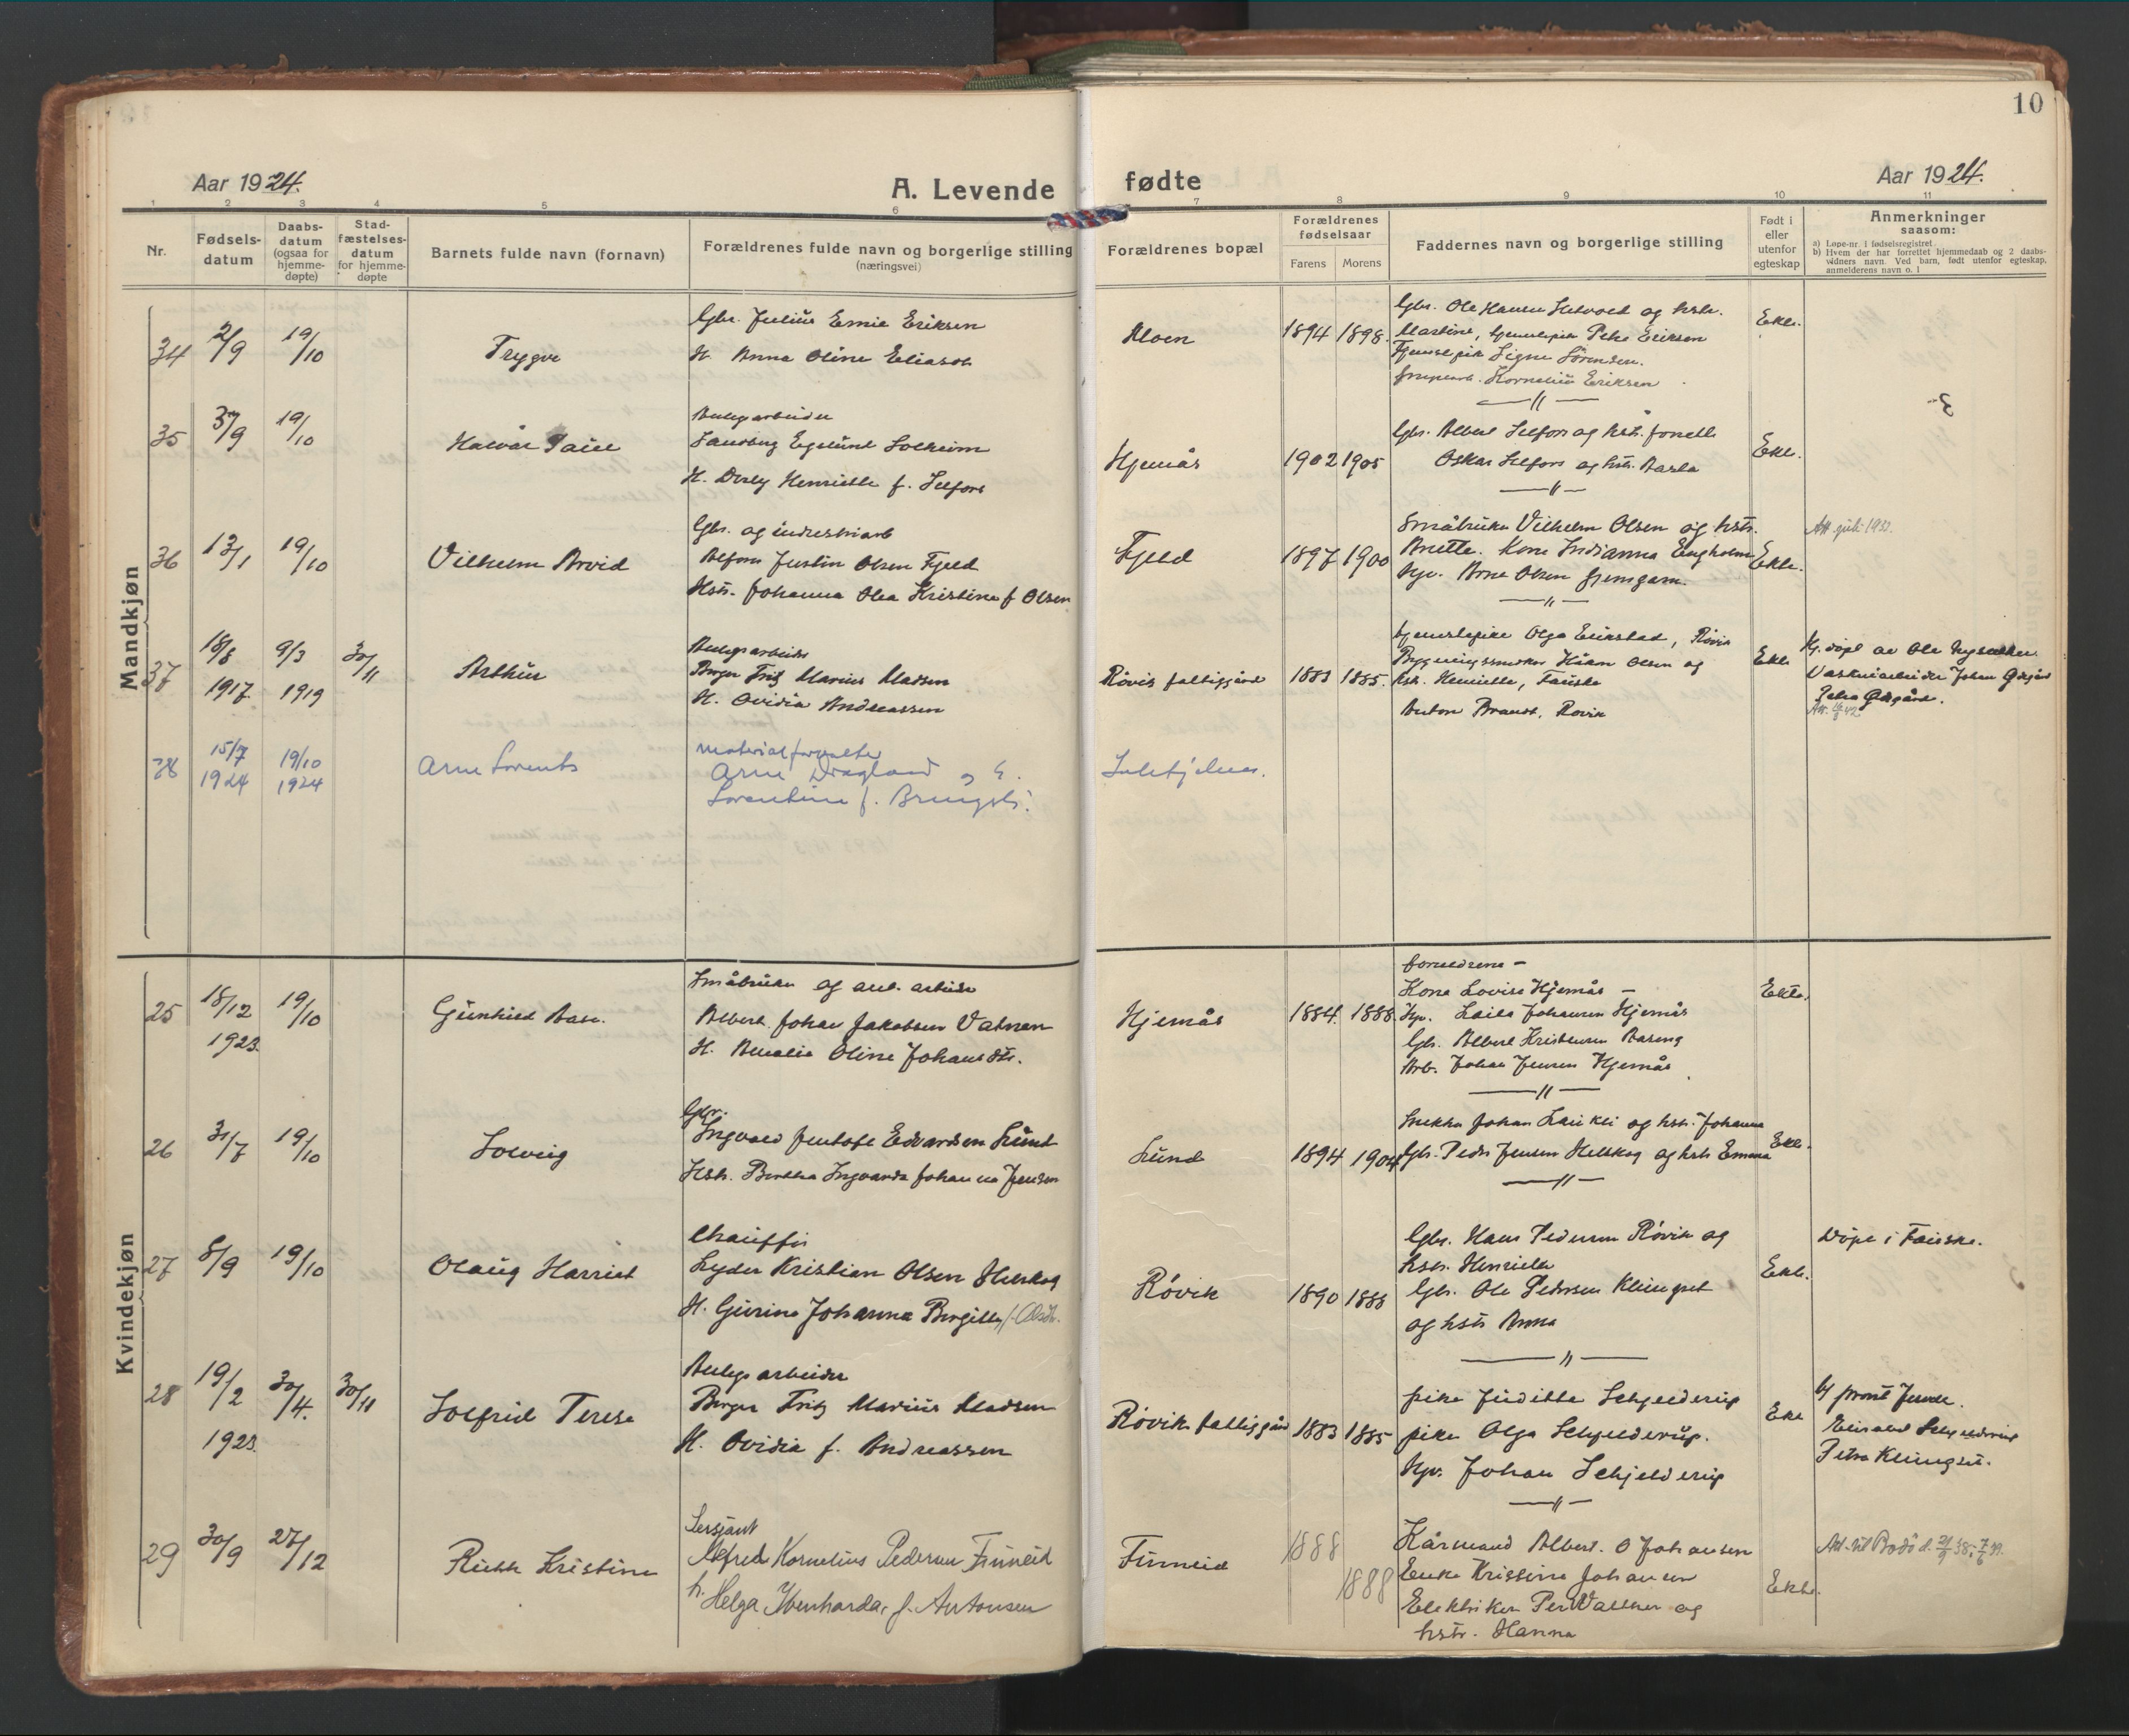 10
Aar 1924.
A. Levende
fødte
Aar 1924.
1 2 3 4 5 6 7 8 9 10 11
Nr.
Fødsels-
datum
Daabs-
datum
(ogsaa for
hjemme-
døpte)
Stad-
fæstelses-
datum
for hjemme-
døpte
Barnets fulde navn (fornavn)
Forældrenes fulde navn og borgerlige stilling
(næringsvei)
Forældrenes bopæl
Forældrenes
fødselsaar
Farens
Morens
Faddernes navn og borgerlige stilling
Født i
eller
utenfor
egteskap
Anmerkninger
saasom:
a) Løpe-nr. i fødselsregistret.
b) Hvem der har forrettet hjemmedaab og 2 daabs-
vidners navn. Ved barn, født utenfor egteskap,
anmelderens navn o. l
Mandkjøn
34 2/9 19/10 Trygve
Gbr. Julius Emil Eriksen
H. Anna Oline Eliasdt
Moen 1894 1898.
Gbr. Ole Hansen og hstr.
Martine, Eriksen
Tjenestepike Signe Sørensen.
Kornelius Eriksen
Ekte.
35 19/10 Halvår
Anlegsarbeider
Egelund Solheim
H. Dorly Henriette f. Selfors
Hjemås 1902 1905
Gbr. Albert Selfors og hstr.
Oskar Selfors og hstr.
Ekte.
36 13/1 19/10 Vilhelm Arvid
Gbr. og industriarb
Alfons Justin Olsen Fjeld
Hstr. Johanna Olea Kristine f Olsen
Fjeld 1897 1900
Småbruker Vilhelm Olsen og hstr.
Anette. Kone Indianna Engholm
Ugv. Arne Olsen
Ekte.
Att. juli 1933.
37 18/8 1917 9/3 1919 30/11 Arthur
Anlegsarbeider
Birger Fritz Marius Madsen
H. Ovidia Andreassen
Røvik fattiggård 1883 1885.
tjenestepike Olga Erikstad, Røvik
Bygningssnekker Olsen og
hstr. Henriette, Fauske
Anton Brandt, Røvik
Ekte
Hj. døpt av Ole
Johan
Petra
38 15/7 1924 19/10 1924 Arne Lorents
materialforvalter
Arne Dragland og h.
Lorentine f. Brungst.
Sulitjelma.
Kvindekjøn
25 18/12 1923. 19/10 Gunhild
Småbruker og anl. arbeider
Albert Johan Jakobsen Vatnan
H. Amalie Oline Johansdtr.
Hjemås 1884. 1888.
foreldrene –
Kone Lovise Hjemås –
Ugv. Laila Johansen Hjemås
Gbr. Albert Kristensen
Arb. Johan Jensen Hjemås
Ekte.
26 31/7 19/10 Solveig
Gbr.
Ingvald Jentoft Edvardsen Lund
Hstr. Bertha Ingvarda Johanna Jensen
Lund 1894 1904
Snekker Johan og hstr. Johanna
Gbr. Peder Jensen Helskog og hstr Emma
Ekte.
27 8/9 19/10 Olaug Harriet
Chauffør
Lyder Kristian Olsen Helskog
H. Gurine Johanna Bergitte f. Olsdtr.
Røvik 1890 1888
Gbr. Hans Pedersen Røvik og
hstr. Henriette
Gbr. Ole Pedersen Klungset
og hstr Anna
Ekte.
Døpt i Fauske.
28 19/2 1923. 30/4. 30/11 Solfrid Terese
Anlegsarbeider
Birger Fritz Marius Madsen
H. Ovidia f. Andreassen
Røvik fattiggård 1883 1885
pike Juditta Schjelderup
pike Olga Schjelderup.
Ugv. Johan Schjelderup
Ekte
Schjelderup
Petra Klungset.
29 30/9 27/12 Ruth Kristine
Sersjant
Alfred Kornelius Pedersen Finneid
h. Helga Ibenharda, f. Antonsen
Finneid 1888 1888
Albert. O Johansen
Enke Kristine Johansen
Elektriker Per Vallner og
hstr. Hanna
Ekte.
Att. til Bodö